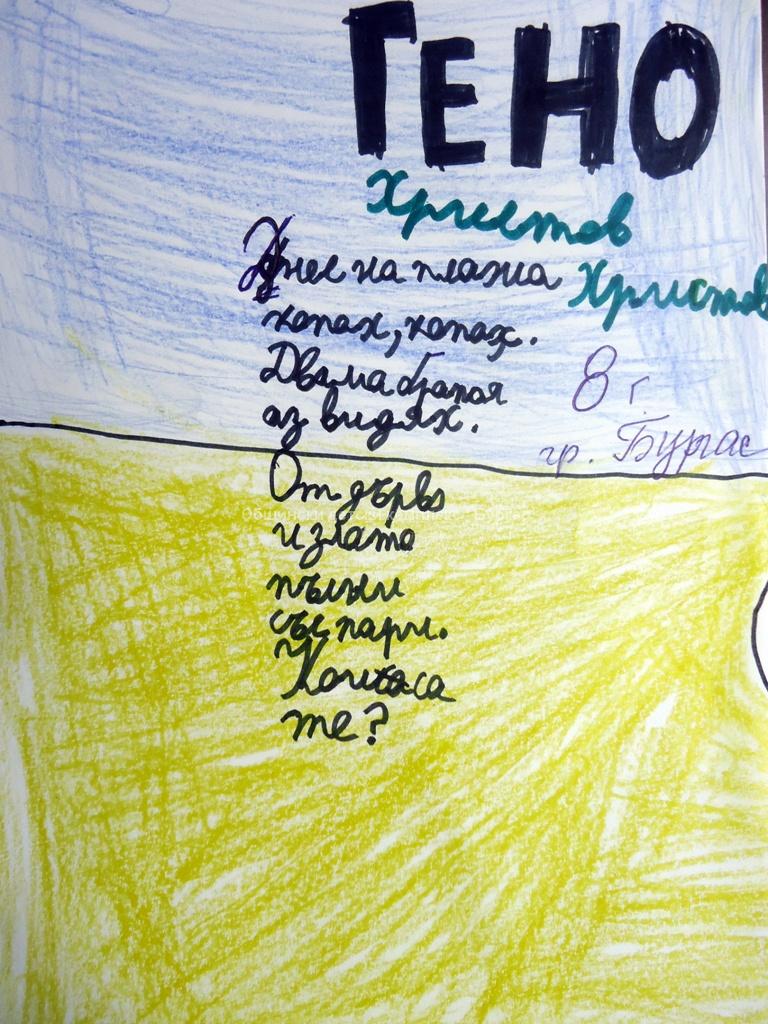 ГЕНО
Христов
Днес на плажа
Христов
копах, копах.
Двама братя
8 г.
аз видях.
гр. Бургас
От дърво
и злато
пълни
със пари.
Кои са
те?